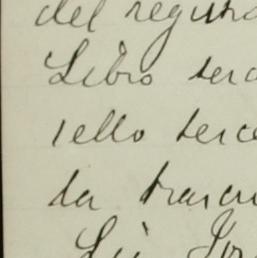 del registr
Libro terc
sello terce
da transcri